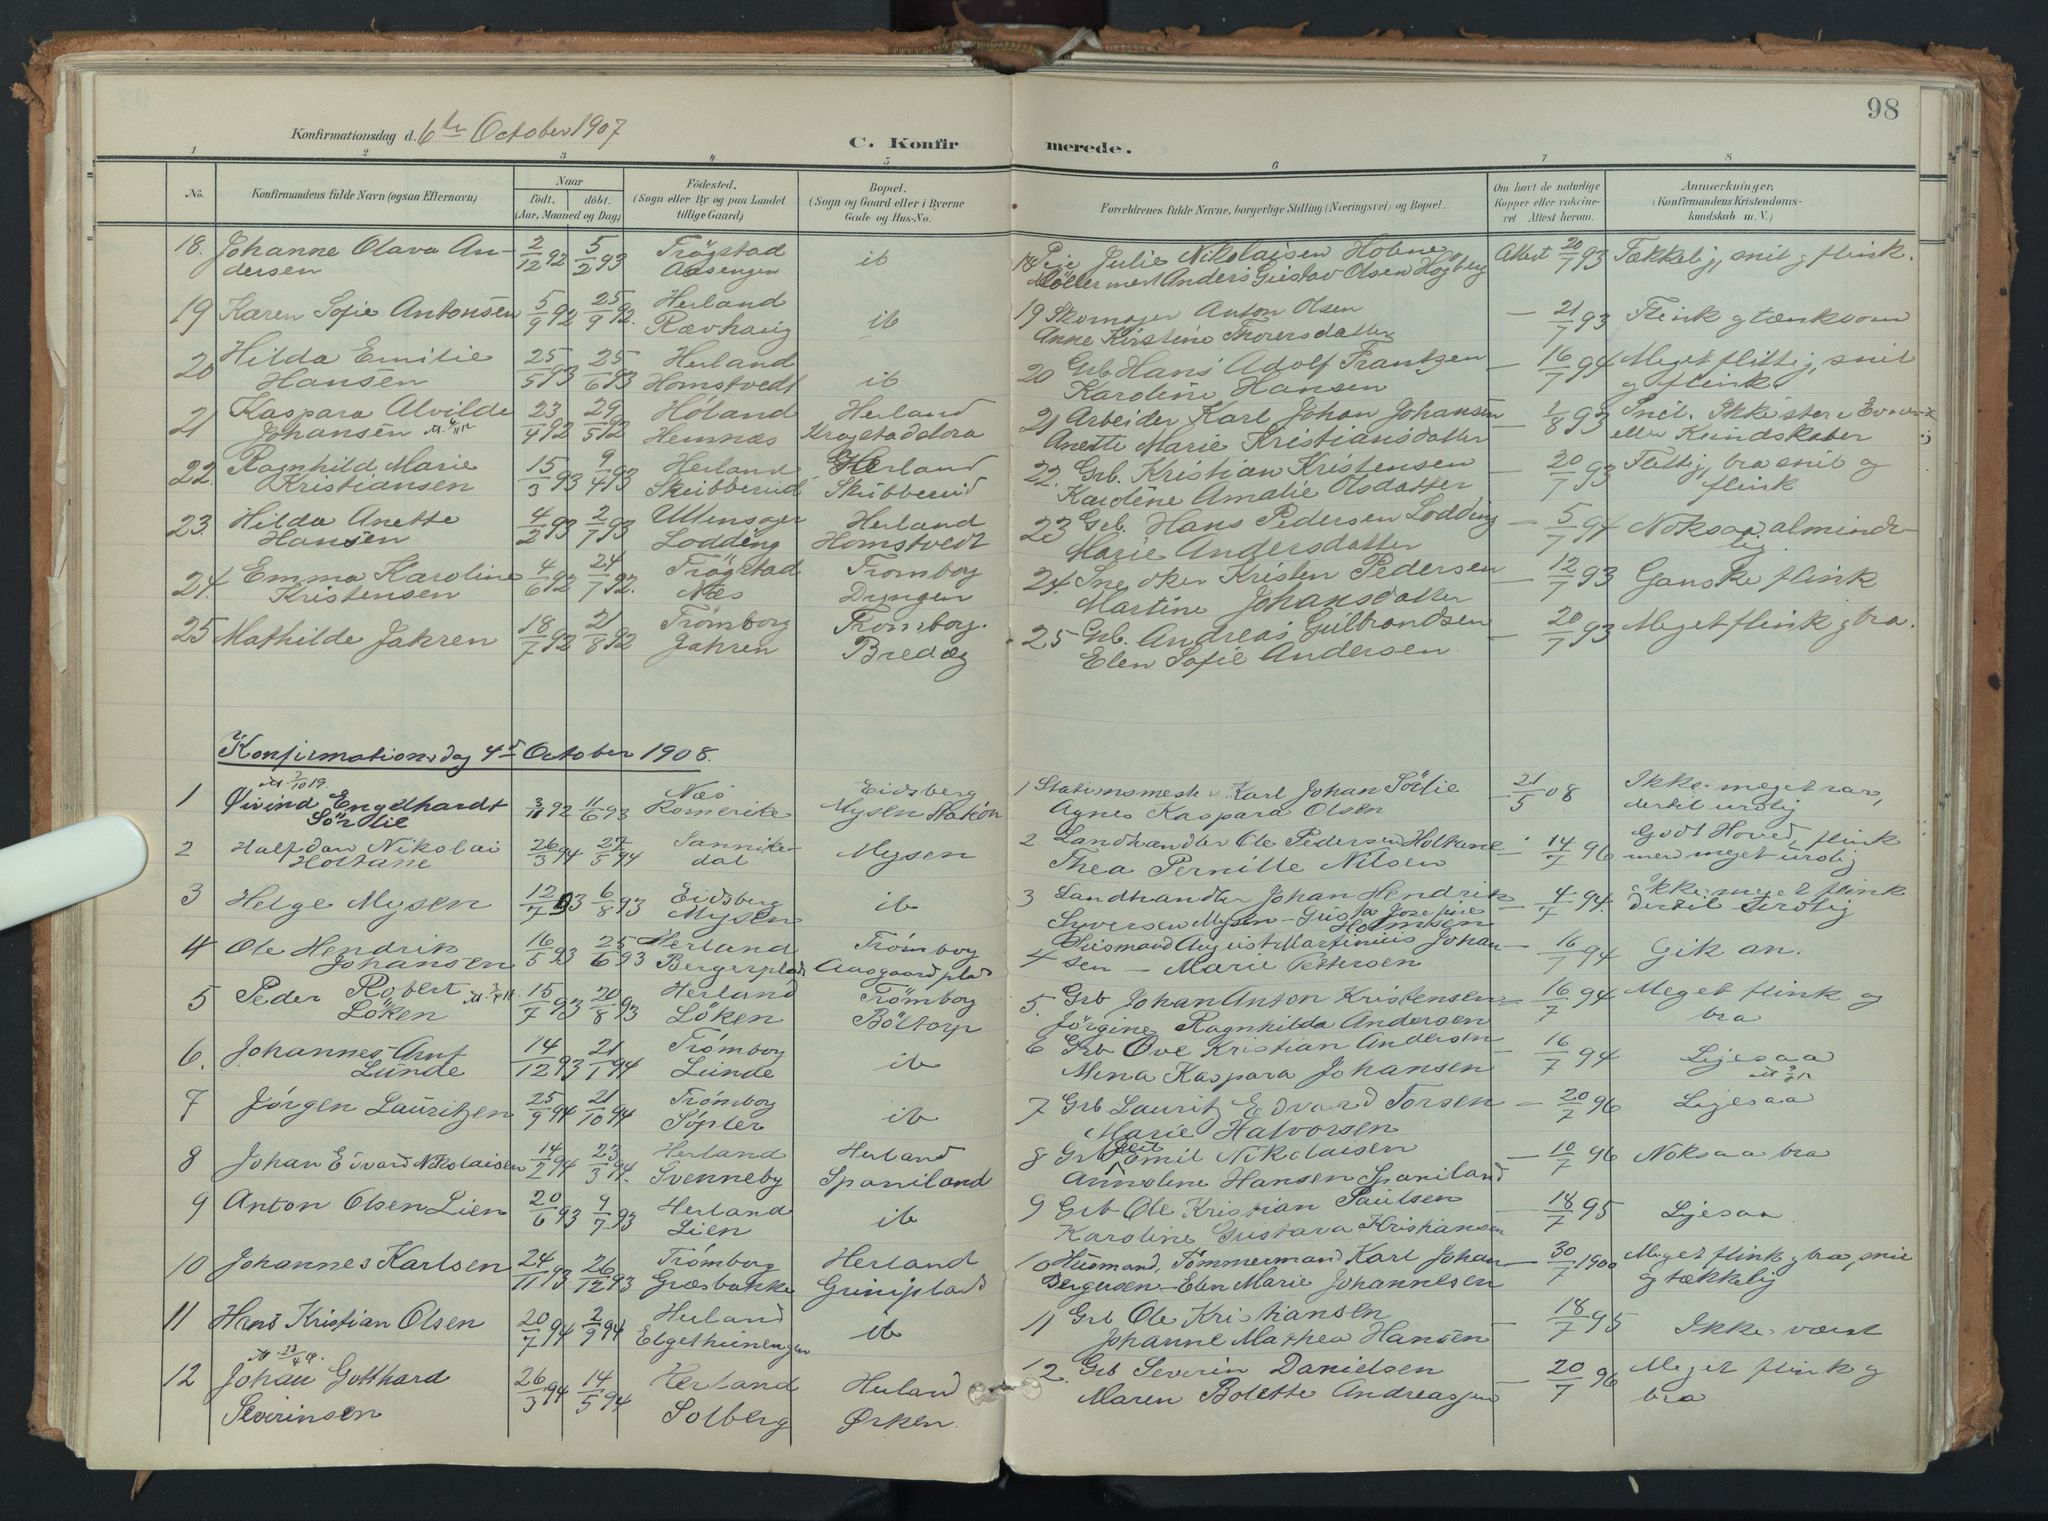 98
Konfirmationsdag d. 6te October 1907
C. Konfirmerede.
1 2 3 4 5 6 7 8
No.
Konfirmandens fulde Navn (ogsaa Efternavn)
Naar
Födt. döbt.
(Aar, Maaned og Dag)
Födested.
(Sogn eller By og paa Landet
tillige Gaard)
Bopæl.
(Sogn og Gaard eller i Byerne
Gade og Hus-No.
Forældrenes fulde Navne, borgerlige Stilling (Næringsvei) og Bopæl.
Om havt de naturlige
Kopper eller vakcine-
ret Attest herom.
Anmærkninger.
(Konfirmandens Kristendoms-
kundskab m. V.)
18. Johanne Olava An- 2/12 92 5/2 93 Trögstad ib 18 Pige Julie Nikolaisen Attest 20/7 93 Tækkelig, snil g flink.
dersen Møller med Anders Gustav Olsen Högberg
19 Karen Sofie Antonsen 5/9 92 25/9 92. Herland ib 19 Skomager Anton Olsen — 21/7 93 Flink g tænksom
Rævhaug Anne Kirstine Thorersdatter
20 Hilda Emilie 25/5 93 25/6 93 Herland ib 20 Grb Hans Adolf Frantzen — 16/7 94 Meget flittig, snil
Hansen Homstvedt Karoline Hansen g flink
21 Kaspara Alvilde 23/4 92 29/5 92 Höland Herland 21 Arbeider Karl Johan Johansen — 1/8 93 Snil. Ikke stere Evner
Johansen Hemnæs Anette Marie Kristiansdatter eller Kundskaber
22. Ragnhild Marie 15/3 93 9/4 93 Herland Herland 22. Grb. Kristian Kristensen — 20/7 93 Flittig, bra snil og
Kristiansen Skibberud Skubberud Karoline Amalie Olsdatter flink
23. Hilda Anette 4/2 93 2/7 93 Ullensager Herland 23 Grb. Hans Pedersen Lodding — 5/7 94 Noksaa alminde-
Hansen Lodding Homstvedt Marie Andersdatter lig
24. Emma Karoline 4/6 92 24/7 92. Trögstad Trömborg 24. Snedker Kristen Pedersen — 12/7 93 Ganske flink
Kristensen Næs Dyngen Martine Johansdatter
25 Mathilde Jahren 18/7 92 21/8 92 Trömborg Trömborg. 25 Grb. Andreas Gulbrandsen — 20/7 93 Meget flink g bra.
Jahren Elen Sofie Andersen.
Konfirmationsdag 4de October 1908.
1 Øivind Engelhardt 3/11 92 11/6 93 Næs Eidsberg 1 Stationsmester Karl Johan Sörlie 21/5 08 Ikke meget rar,
Sörlie Romerike Mysen Station Agnes Kaspara Olsen dertil urolig
2 Halfdan Nikolai 26/3 94 27/5 94 Sannike- Mysen 2 Landhandler Ole Pedersen Holtane — 14/7 96 Godt Hoved, flink
Holtane dal Thea Pernille Nilsen men meget urolig
3 Helge Mysen 12/7 93 6/8 93 Eidsberg ib 3 Landhandler Johan Hendrik — 4/7 94. Ikke meget flink
Mysen Syversen Mysen — Gusta Josefine Holmsen dertil urolig
4 Ole Hendrik 16/5 93 25/6 93 Herland Trömborg 4 Husmand August Martinius Johan- — 16/7 94 Gik an.
Johansen Bergerplads Aasgaardplads sen — Marie Pettersen
5 Peder Robert 15/7 93 20/8 93 Herland Trömborg 5. Grb Johan Anton Kristensen — 16/7 94 Meget flink og
Löken Löken Böltorp Jörgine Ragnhilda Andersen bra
6. Johannes Arnt 14/12 93 21/1 94 Trömborg ib 6 Grb Ove Kristian Andersen — 16/7 94 Ligesaa
Lunde Lunde Mena Kaspara Johansen
7 Jörgen Lauritzen 25/9 94 21/10 94 Trömborg ib 7 Grb Lauritz Edvard Torsen — 20/7 96 Ligesaa
Söpler Marie Halvorsen
8 Johan Edvard Nikolaisen 14/2 94 23/3 94. Herland Herland 8 Grb Emil Nikolaisen — 10/7 96 Noksaa bra
Svenneby Spaniland Annoline Hansen Spaniland
9 Anton Olsen Lien 20/6 93 9/7 93 Herland ib 9 Grb Ole Kristian Paulsen — 18/7 95 Ligesaa
Lien Karoline Gustava Kristiansen
10 Johannes Karlsen 24/11 93 26/12 93 Trömborg Herland 10 Husmand, Tömmermand Karl Johan — 30/7 1900 Meget flink g bra, snil
Græsbakke Griniplads Bergersen — Elen Marie Johannesen g tækkelig
11 Hans Kristian Olsen 20/7 94 2/9 94 Herland ib 11 Grb Ole Kristiansen — 18/7 95 Ikke værst
Elgethunengen Johanne Mathea Hansen
12 Johan Gotthard 26/3 94 14/5 94 Herland Herland 12. Grb Severin Danielsen — 20/7 96 Meget flink g
Severinsen Solberg Ørken. Maren Bolette Andreassen bra